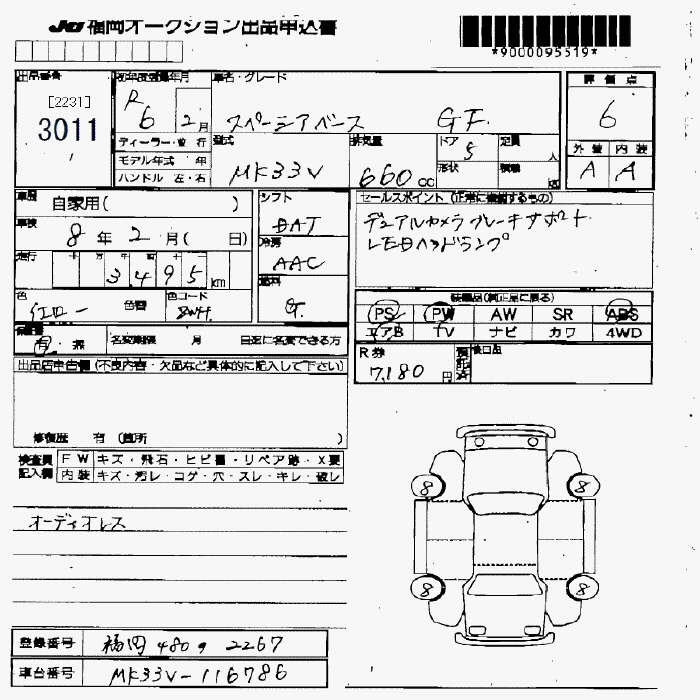 JU 福岡オークション出品申込書
*9000095519*
出品番号 [2231] 3011
初年度登録年月 R6 2月
車名・グレード スペーシアベース GF
評価点 6
外装 A 内装 A
ディーラー・並行
モデル年式 年
ハンドル 左・右
型式 MK33V
排気量 660cc
ドア 5
形状
定員 人
積載 kg
車歴 自家用( )
車検 8年2月( 日)
走行 十 万 千 百 十 3495km
色 イエロー 色替
色コード
シフト
冷房 AAC
燃料 G
セールスポイント (正常に機能するもの)
デュアルカメラブレーキサポート
LEDヘッドランプ
装備品(純正品に限る)
PS PW AW SR ABS
エアB TV ナビ カワ 4WD
保証書 有・無
名変期限 月 日迄に名変できる方
R券 7,180円
後日品
出品店申告欄 (不良内容・欠品など具体的に記入して下さい)
修復歴 有 (箇所 )
検査員記入欄
FW キズ・飛石・ヒビ割・リペア跡・X要
内装 キズ・汚レ・コゲ・穴・スレ・キレ・破レ
オーディオレス
8 8
8 8
登録番号 福岡 480 2267
車台番号 MK33V-116786